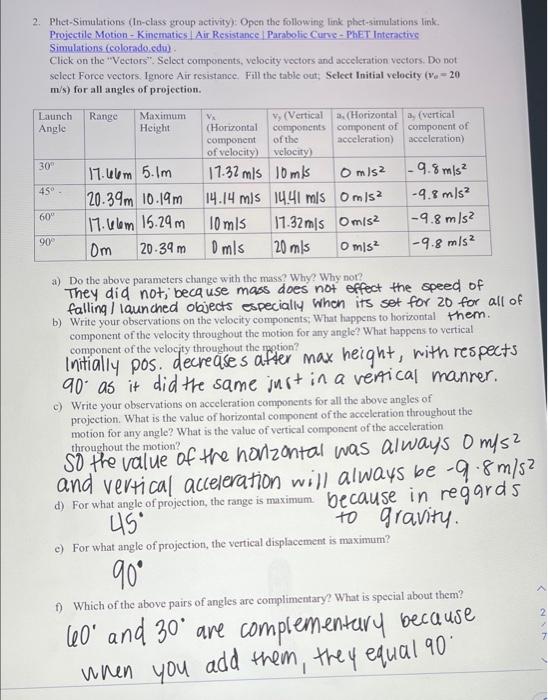 2. Phet-Simulations (In-class group activity): Open the following link phet-simulations link.
Projectile Motion - Kinematics | Air Resistance | Parabolic Curve - PhET Interactive
Simulations (colorado.edu) .
Click on the "Vectors". Select components, velocity vectors and acceleration vectors. Do not
select Force vectors. Ignore Air resistance. Fill the table out; Select Initial velocity (vₒ = 20
m/s) for all angles of projection.
Launch Angle | Range | Maximum Height | Vx (Horizontal component of velocity) | Vy (Vertical components of the velocity) | ax (Horizontal component of acceleration) | ay (vertical component of acceleration)
30° | 17.66m | 5.1m | 17.32 m/s | 10 m/s | 0 m/s² | -9.8 m/s²
45° | 20.39m | 10.19m | 14.14 m/s | 14.41 m/s | 0 m/s² | -9.8 m/s²
60° | 17.66m | 15.29m | 10 m/s | 17.32 m/s | 0 m/s² | -9.8 m/s²
90° | 0m | 20.39 m | 0 m/s | 20 m/s | 0 m/s² | -9.8 m/s²
a) Do the above parameters change with the mass? Why? Why not?
They did not, because mass does not effect the speed of
falling / launched objects especially when its set for 20 for all of
them.
b) Write your observations on the velocity components; What happens to horizontal
component of the velocity throughout the motion for any angle? What happens to vertical
component of the velocity throughout the motion?
Initially pos. decreases after max height, with respects
90° as it did the same just in a vertical manner.
c) Write your observations on acceleration components for all the above angles of
projection. What is the value of horizontal component of the acceleration throughout the
motion for any angle? What is the value of vertical component of the acceleration
throughout the motion?
SO the value of the horizontal was always 0 m/s²
and vertical acceleration will always be -9.8 m/s²
because in regards
to gravity.
d) For what angle of projection, the range is maximum.
45°
e) For what angle of projection, the vertical displacement is maximum?
90°
f) Which of the above pairs of angles are complimentary? What is special about them?
60° and 30° are complementary because
when you add them, they equal 90°
2
7